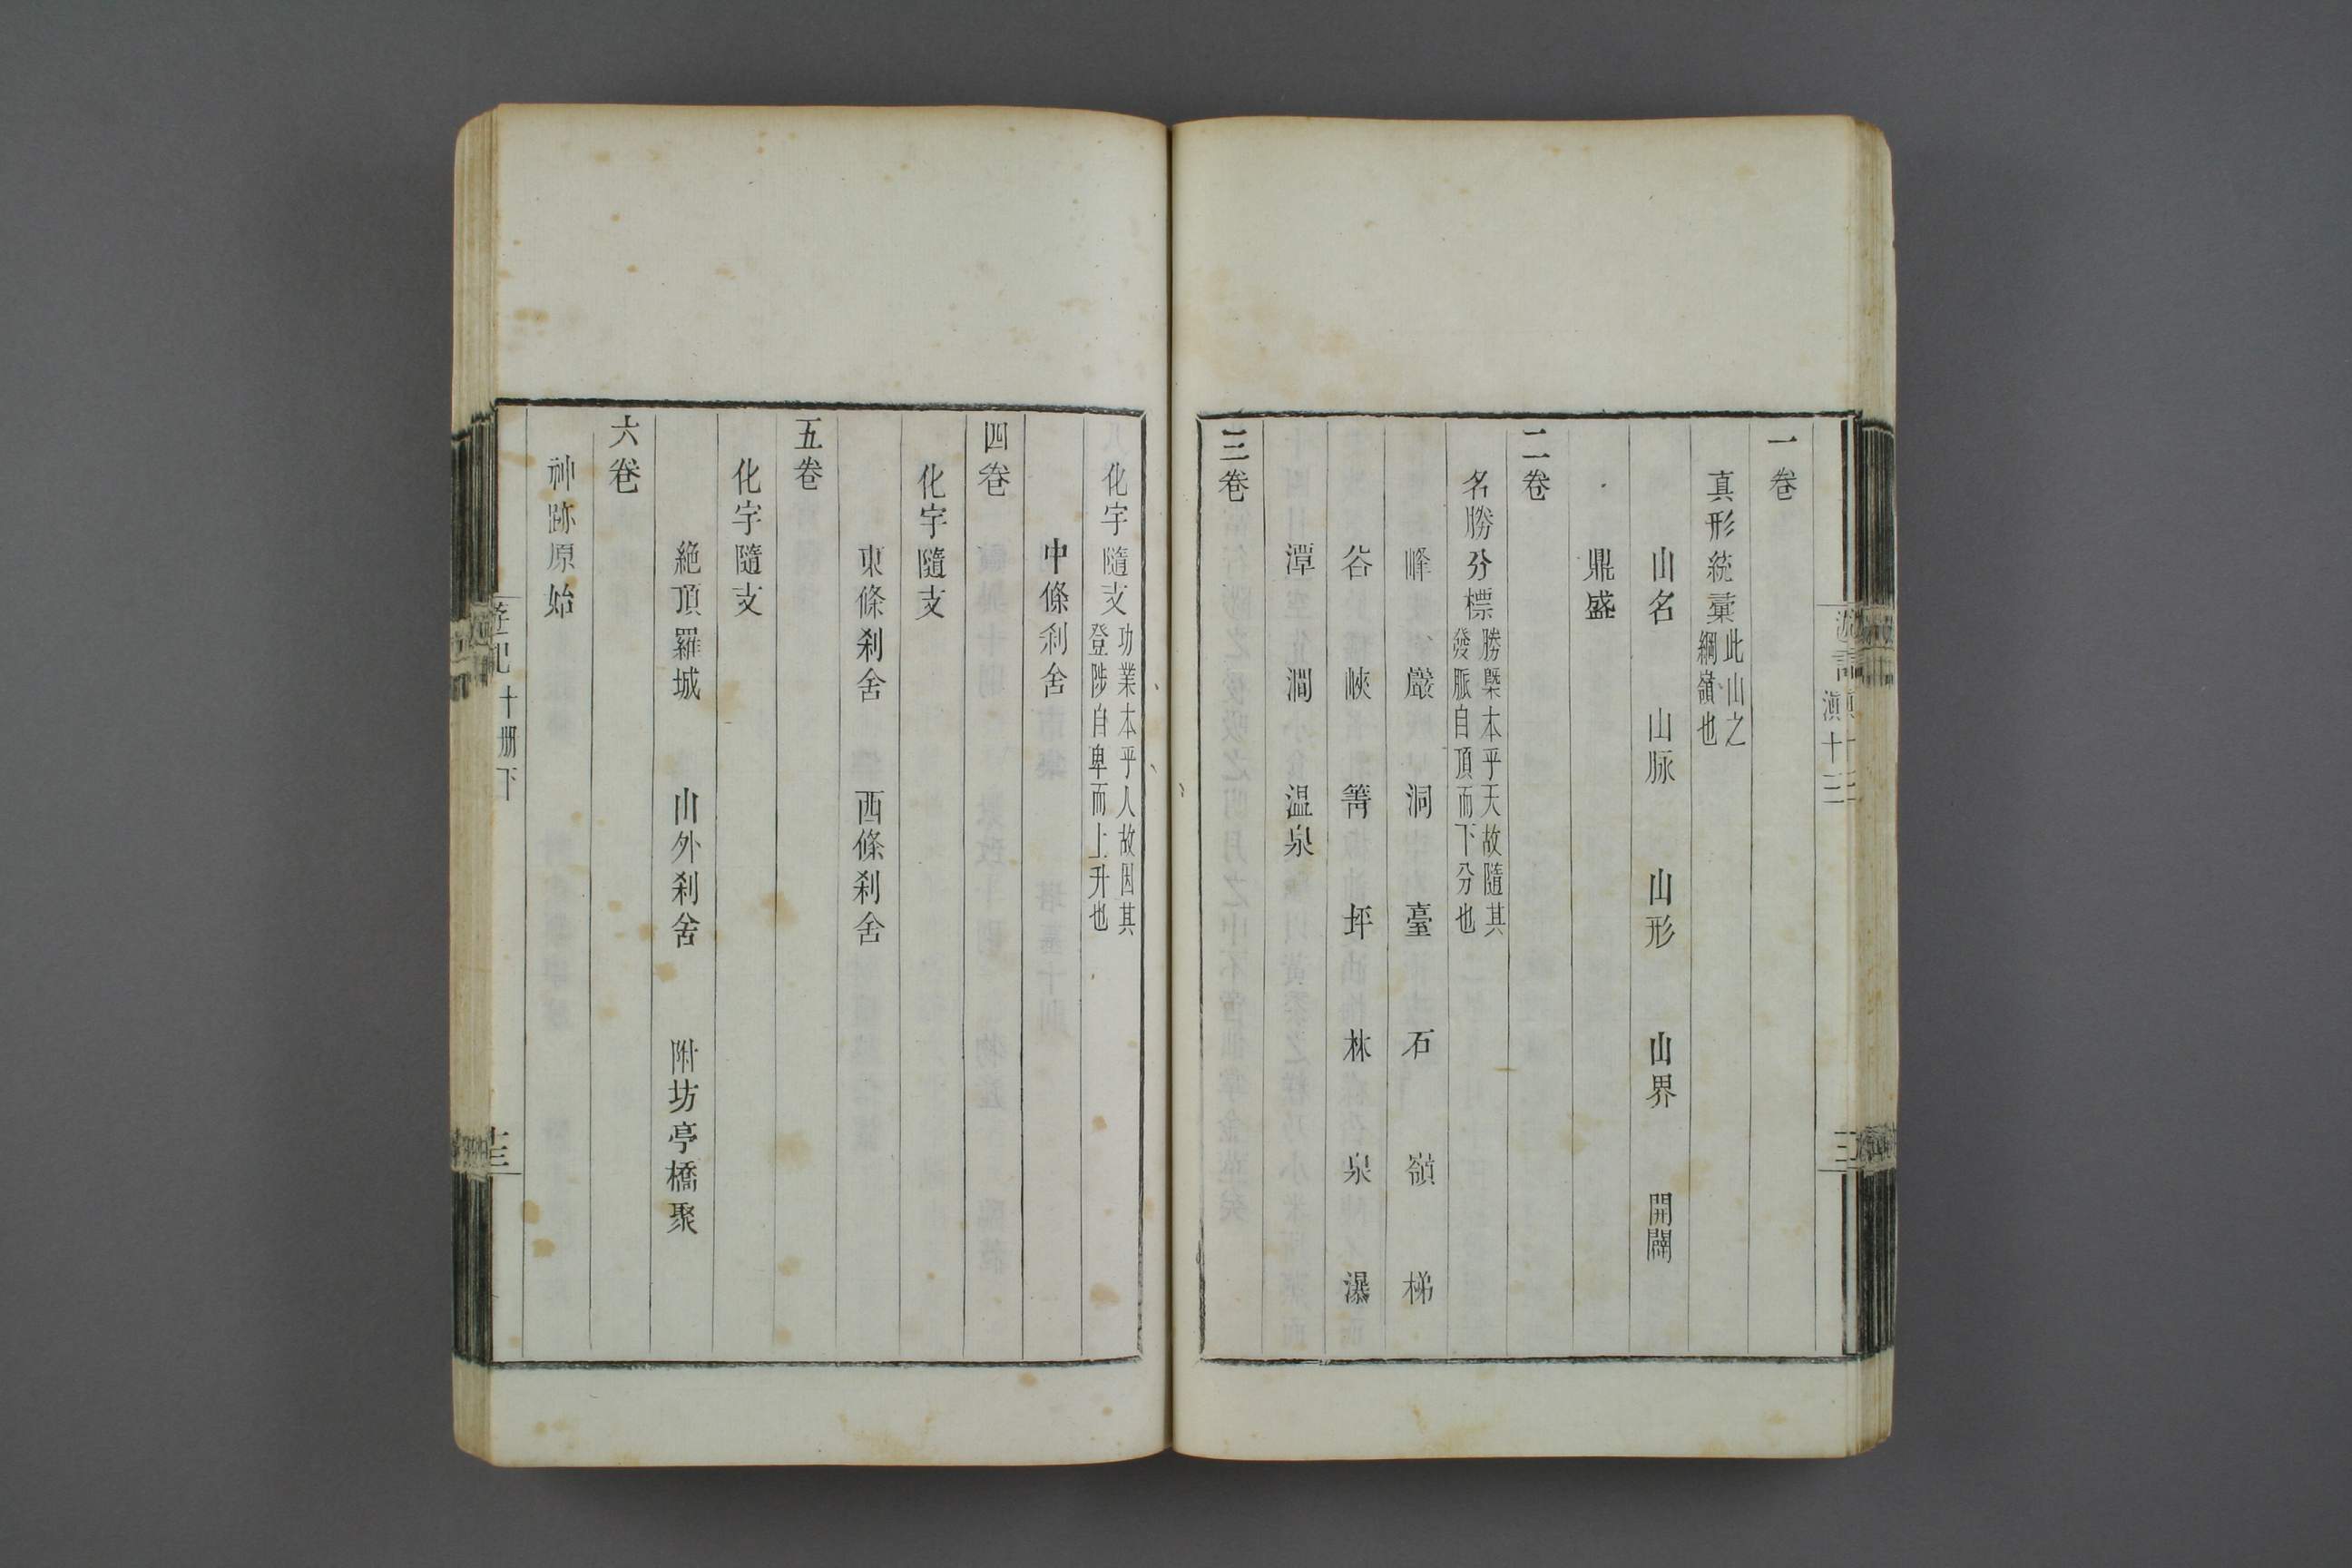 一卷
真形統彙此山之綱嶺也
山名 山脉 山形 山界 開闢
鼎盛
二卷
名勝分標勝槩本乎天故隨其發脈自頂而下分也
峰 巖 洞 臺 石 嶺 梯
谷 峽 箐 坪 林 泉 瀑
潭 澗 温泉
三卷
化宇隨支功業本乎人故因其登陟自卑而上升也
中條刹舍
四卷
化宇隨支
東條刹舍 西條刹舍
五卷
化宇隨支
絶頂羅城 山外刹舍 附坊亭橋聚
六卷
神跡原始
十册下